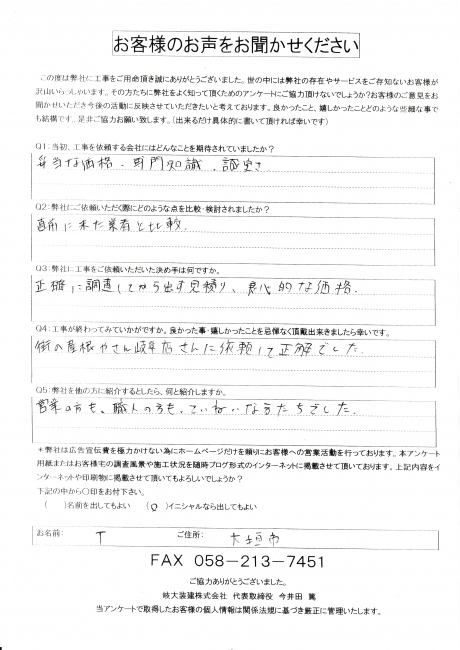 お客様のお声をお聞かせください
この度は弊社に工事をご用命頂き誠にありがとうございました。世の中には弊社の存在やサービスをご存知ないお客様が
沢山いらっしゃいます。その方たちに弊社をよく知って頂くためのアンケートにご協力頂けないでしょうか?お客様のご意見をお
聞かせいただき今後の活動に反映させていただきたいと考えております。良かったこと、嬉しかったことどのような些細な事で
も結構です。是非ご協力お願い致します。(出来るだけ具体的に書いて頂ければ幸いです)
Q1:当初、工事を依頼する会社にはどんなことを期待されていましたか?
な価格、専門知識、誠実さ
Q2:弊社にご依頼いただく際にどのような点を比較・検討されましたか?
直前に来た業者と比較
Q3:弊社に工事をご依頼いただいた決め手は何ですか。
正確に調査してから出す見積り、良心的な価格。
Q4:工事が終わってみていかがですか。良かった事・嬉しかったことを忌憚なく頂戴出来ましたら幸いです。
街の屋根やさん岐阜店さんに依頼して正解でした
Q5:弊社を他の方に紹介するとしたら、何と紹介しますか。
営業の方も、職人の方も、ていねいな方たちでした
*弊社は広告宣伝費を極力かけない為にホームページだけを頼りにお客様への営業活動を行っております。本アンケート
用紙またはお客様宅の調査風景や施工状況を随時ブログ形式のインターネットに掲載させて頂いております。上記内容をイ
ンターネットや印刷物に掲載させて頂いてもよろしいでしょうか?
下記の中から〇印をお付下さい。
( )名前を出してもよい (○)イニシャルなら出してもよい
お名前: T ご住所: 大垣市
FAX 058-213-7451
ご協力ありがとうございました。
岐大装建株式会社 代表取締役 今井田 篤
当アンケートで取得したお客様の個人情報は関係法規に基づき厳正に管理いたします。